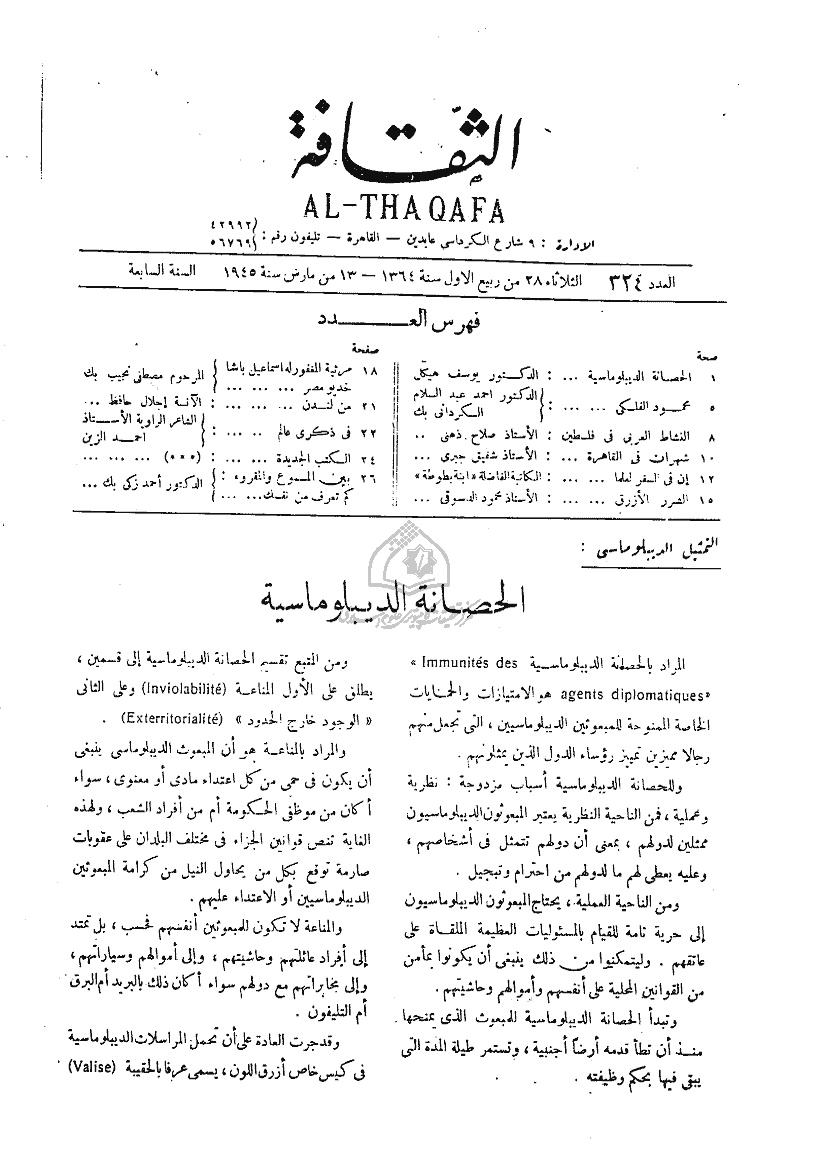 الثقافة
AL-THAQAFA
الإدارة : ٩ شارع الكرداسى عابدين — القاهرة — تليفون رقم : { ٤٢٩٩٢
٥٦٧٦٩ }
العدد ٣٢٤ الثلاثاء ٢٨ من ربيع الاول سنة ١٣٦٤ — ١٣ من مارس سنة ١٩٤٥ السنة السابعة
فهرس العدد
صحة
١ الحصانة الديبلوماسية ... : الدكتور يوسف هيكل
٥ محمود الفلكى ... ... : { الدكتور احمد عبد السلام
الكردانى بك
٨ النشاط العربى فى فلسطين : الأستاذ صلاح ذهنى ..
١٠ شهرات فى القاهرة ... : الأستاذ شفيق جبرى ...
١٢ إن فى السفر لعلما ... ... : الكاتبة الفاضلة « ابنة بطوطة »
١٥ الضرر الأزرق ... ... : الأستاذ محمود الدسوقى ...
صفحة
١٨ مرثية المغفور له اسماعيل باشا
خديو مصر ... ... ... } المرحوم مصطفى نجيب بك
٢١ من لندن ... ... ... : الآنسة إجلال حافظ ...
٢٢ فى ذكرى عالم .. ... : { الشاعر الراوية الأستاذ
احمد الزين
٢٤ الكتب الجديدة ... ... : (***) ... ... ...
٢٦ بين المسموع والمقروء :
كم تعرف من نفسك... ... } الدكتور أحمد زكى بك ...
التمثيل الديبلوماسى :
الحصانة الديبلوماسية
المراد بالحصانة الديبلوماسية Immunités des »
agents diplomatiques» هو الامتيازات والحمايات
الخاصة الممنوحة للمبعوثين الديبلوماسيين ، التى تجعل منهم
رجالا مميزين تمييز رؤساء الدول الذين يمثلونهم .
وللحصانة الديبلوماسية أسباب مزدوجة : نظرية
وعملية ، فمن الناحية النظرية يعتبر المبعوثون الديبلوماسيون
ممثلين لدولهم ، بمعنى أن دولهم تتمثل فى أشخاصهم ،
وعليه يعطى لهم ما لدولهم من احترام وتبجيل .
ومن الناحية العملية ، يحتاج المبعوثون الديبلوماسيون
إلى حرية تامة للقيام بالمسئوليات العظيمة الملقاة على
عاتقهم . وليتمكنوا من ذلك ينبغى أن يكونوا بمأمن
من القوانين المحلية على أنفسهم وأموالهم وحاشيتهم .
وتبدأ الحصانة الديبلوماسية للمبعوث الذى يمنحها
منذ أن تطأ قدمه أرضاً أجنبية ، وتستمر طيلة المدة التى
يبقى فيها بحكم وظيفته .
ومن المتبع تقسيم الحصانة الديبلوماسية إلى قسمين ،
يطلق على الأول المناعة (Inviolabilité) وعلى الثانى
« الوجود خارج الحدود » (Exterritorialité) .
والمراد بالمناعة هو أن المبعوث الديبلوماسى ينبغى
أن يكون فى حمى من كل اعتداء مادى أو معنوى ، سواء
أكان من موظفى الحكومة أم من أفراد الشعب ، ولهذه
الغاية تنص قوانين الجزاء فى مختلف البلدان على عقوبات
صارمة توقع بكل من يحاول النيل من كرامة المبعوثين
الديبلوماسيين أو الاعتداء عليهم .
والمناعة لا تكون للمبعوثين أنفسهم فحسب ، بل تمتد
إلى أفراد عائلتهم وحاشيتهم ، وإلى أموالهم وسياراتهم ،
وإلى مخابراتهم مع دولهم سواء أكان ذلك بالبريد أم البرق
أم التليفون .
وقد جرت العادة على أن تحمل المراسلات الديبلوماسية
فى كيس خاص أزرق اللون ، يسمى عرفا بالحقيبة (Valise)